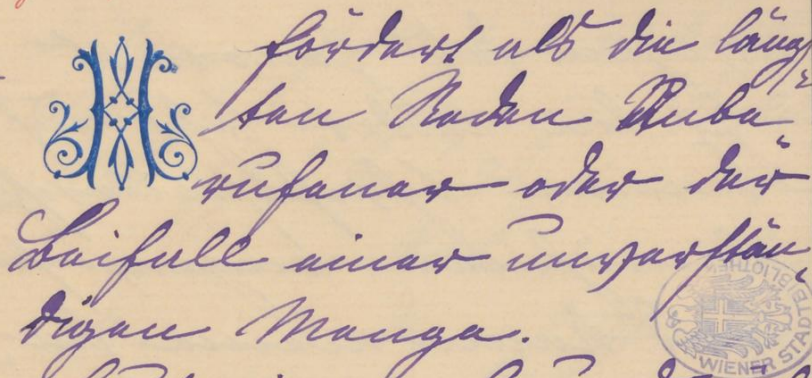 fördert als die läng-
sten Reden Unbe-
rufener oder der
Beifall einer unverstän-
digen Menge.
WIENER STA
BIBLIOTHE
H